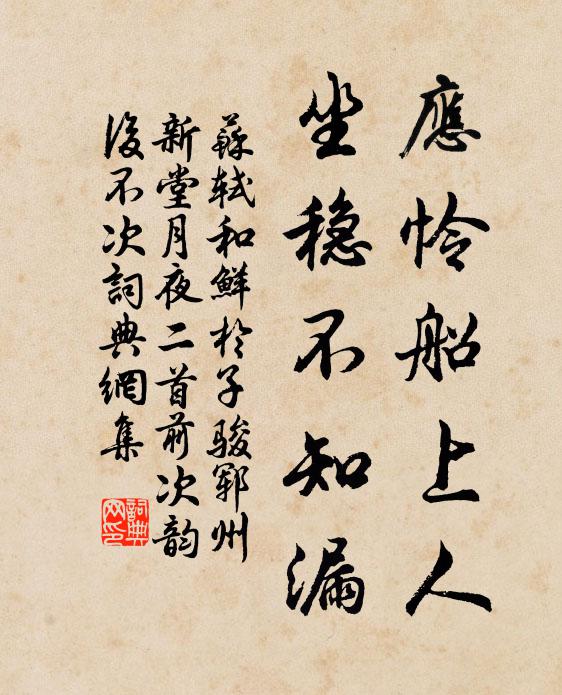 應怜船上人
坐稳不知漏
蘇軾和鮮於子駿鄆州
新堂月夜二首前次韵
後不次詞典網集
詞典
网印